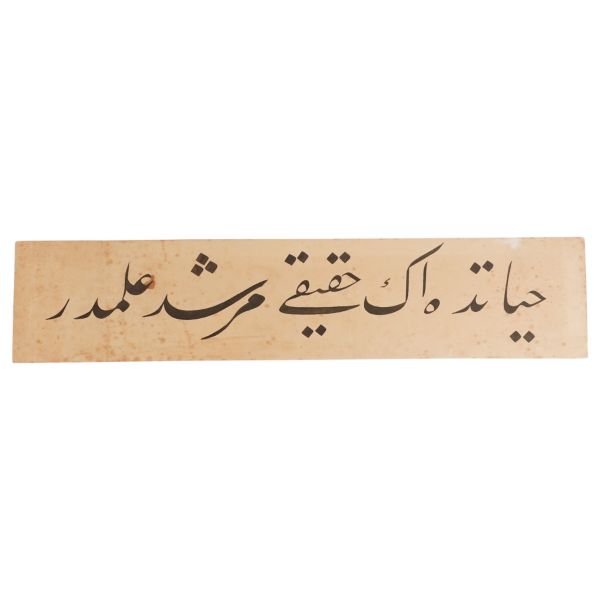 حیاتده اك حقیقی مرشد علمدر